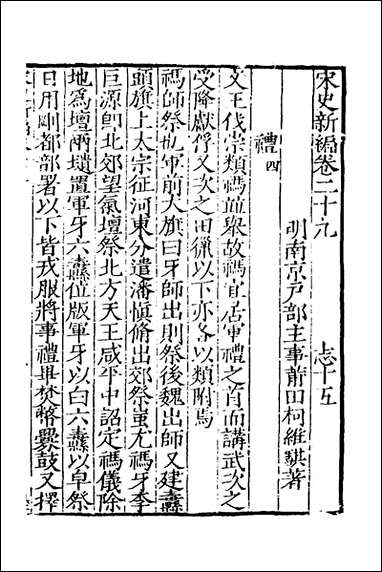 宋史新編卷二十九　志十五
明南京戶部主事莆田柯維騏著
禮四
文王伐崇類禡並舉故禡宜居軍禮之首而講武次之
受降獻俘又次之田獵以下亦各以類附焉
禡師祭也軍前大旗曰牙師出則祭後魏出師又建纛
頭旗上太宗征河東分遣潘慎脩出郊祭蚩尤禡牙李
巨源卽北郊望氣壇祭北方天王咸平中詔定禡儀除
地爲壇兩壝置軍牙六纛位版軍牙以白六纛以皁祭
日用剛都部署以下皆戎服將事禮畢焚幣釁鼓又擇